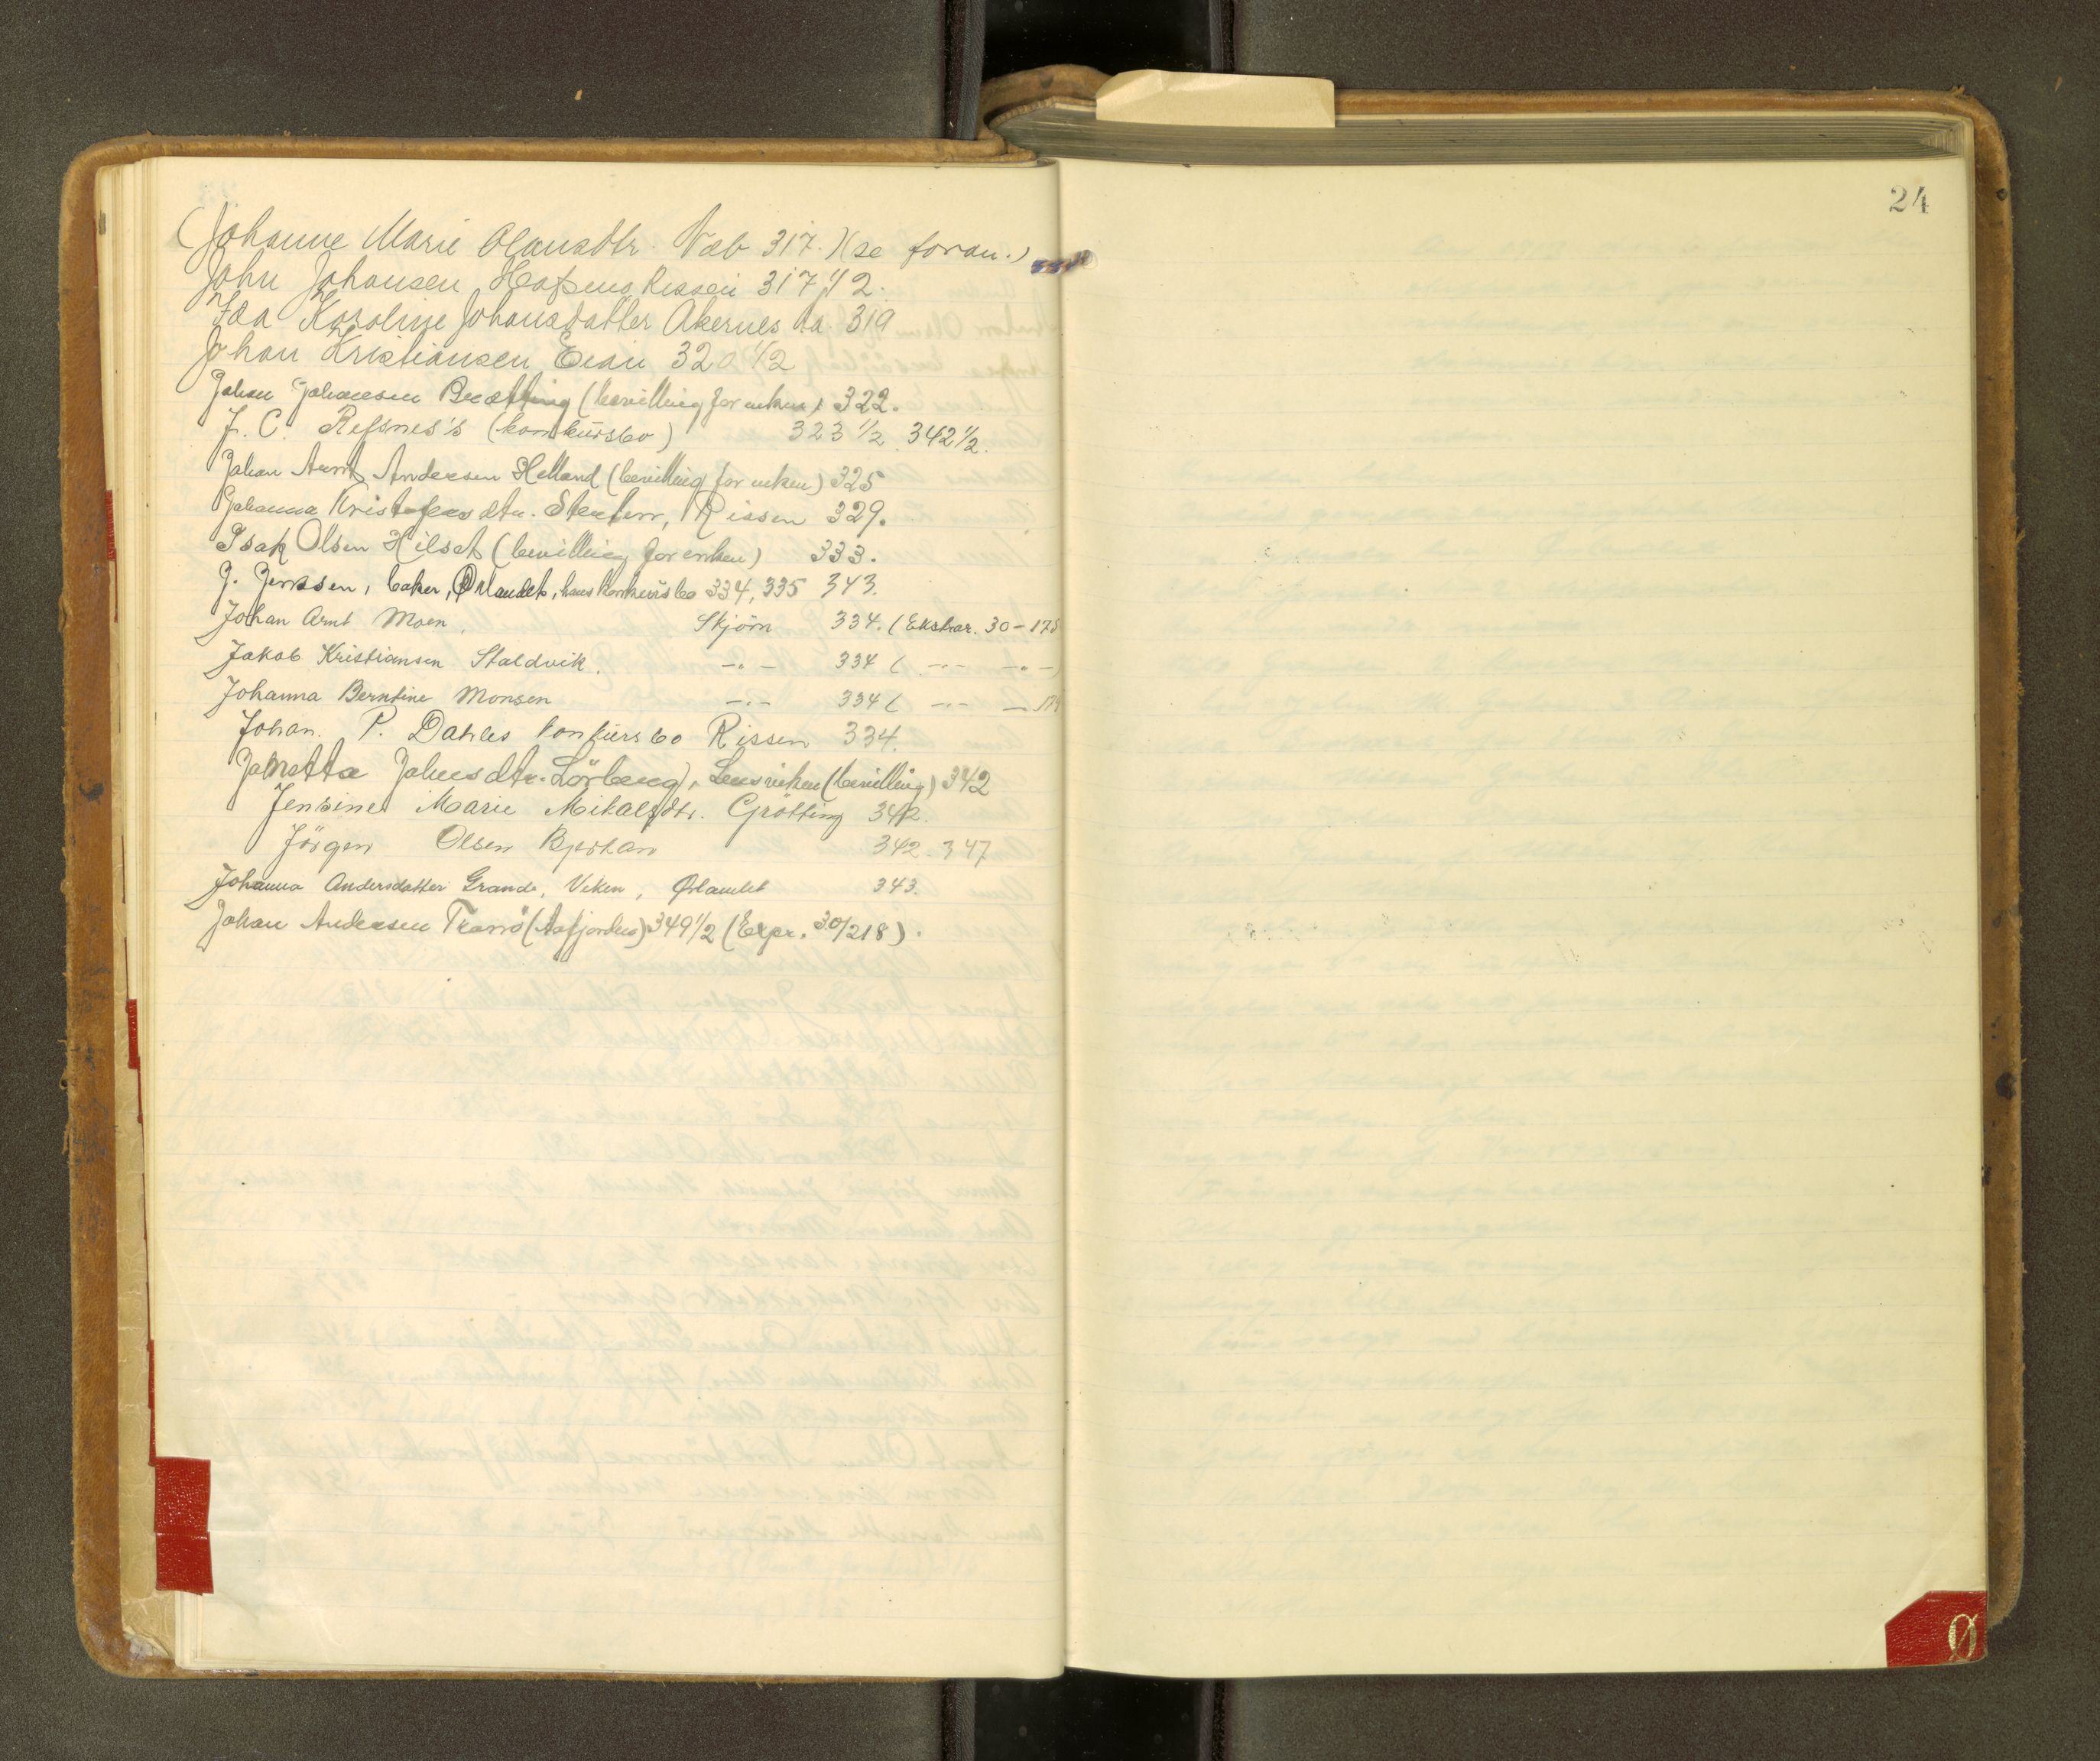 (Johanne Marie Olausdtr. Væb 317.) (se foran.)
John Johansen Hasselvig Rissen 317 1/2.
Ida Karoline Johansdatter Akernes da. 319
Johan Kristiansen Eian 320 1/2
Johan Johansen Brætting (bevilling for enken) 322.
J. C. Refsnes's (konkursbo) 323 1/2 342 1/2.
Johan Arnt Andersen Helland (bevilling for enken) 325
Johanna Kristofersdtr. Rissen 329.
Isak Olsen Hilset (bevilling for enken) 333.
J. Jenssen, baker, Ørlandet, hans konkursbo 334, 335 343.
Johan Arnt Moen, Skjørn 334. (Ekstrar. 30 - 175
Jakob Kristiansen Staldvik. -"- 334 ( -"- -"-)
Johanna Berntine Monsen -"- 334 ( -"- -
Johan. P. Dahles konkursbo Rissen 334.
Jonetta Johnsdtr. Lörberg, Lensviken (bevilling) 342
Jensine Marie Mikalsdtr. Grötting 342.
Jörgen Olsen Bjerkan 342. 347
Johanna Andersdatter Grande, Viken, Ørlandet 343.
Johan Andersen Tranö (Aafjorden) 349 1/2 (Expr. 30/218).
24
Ø